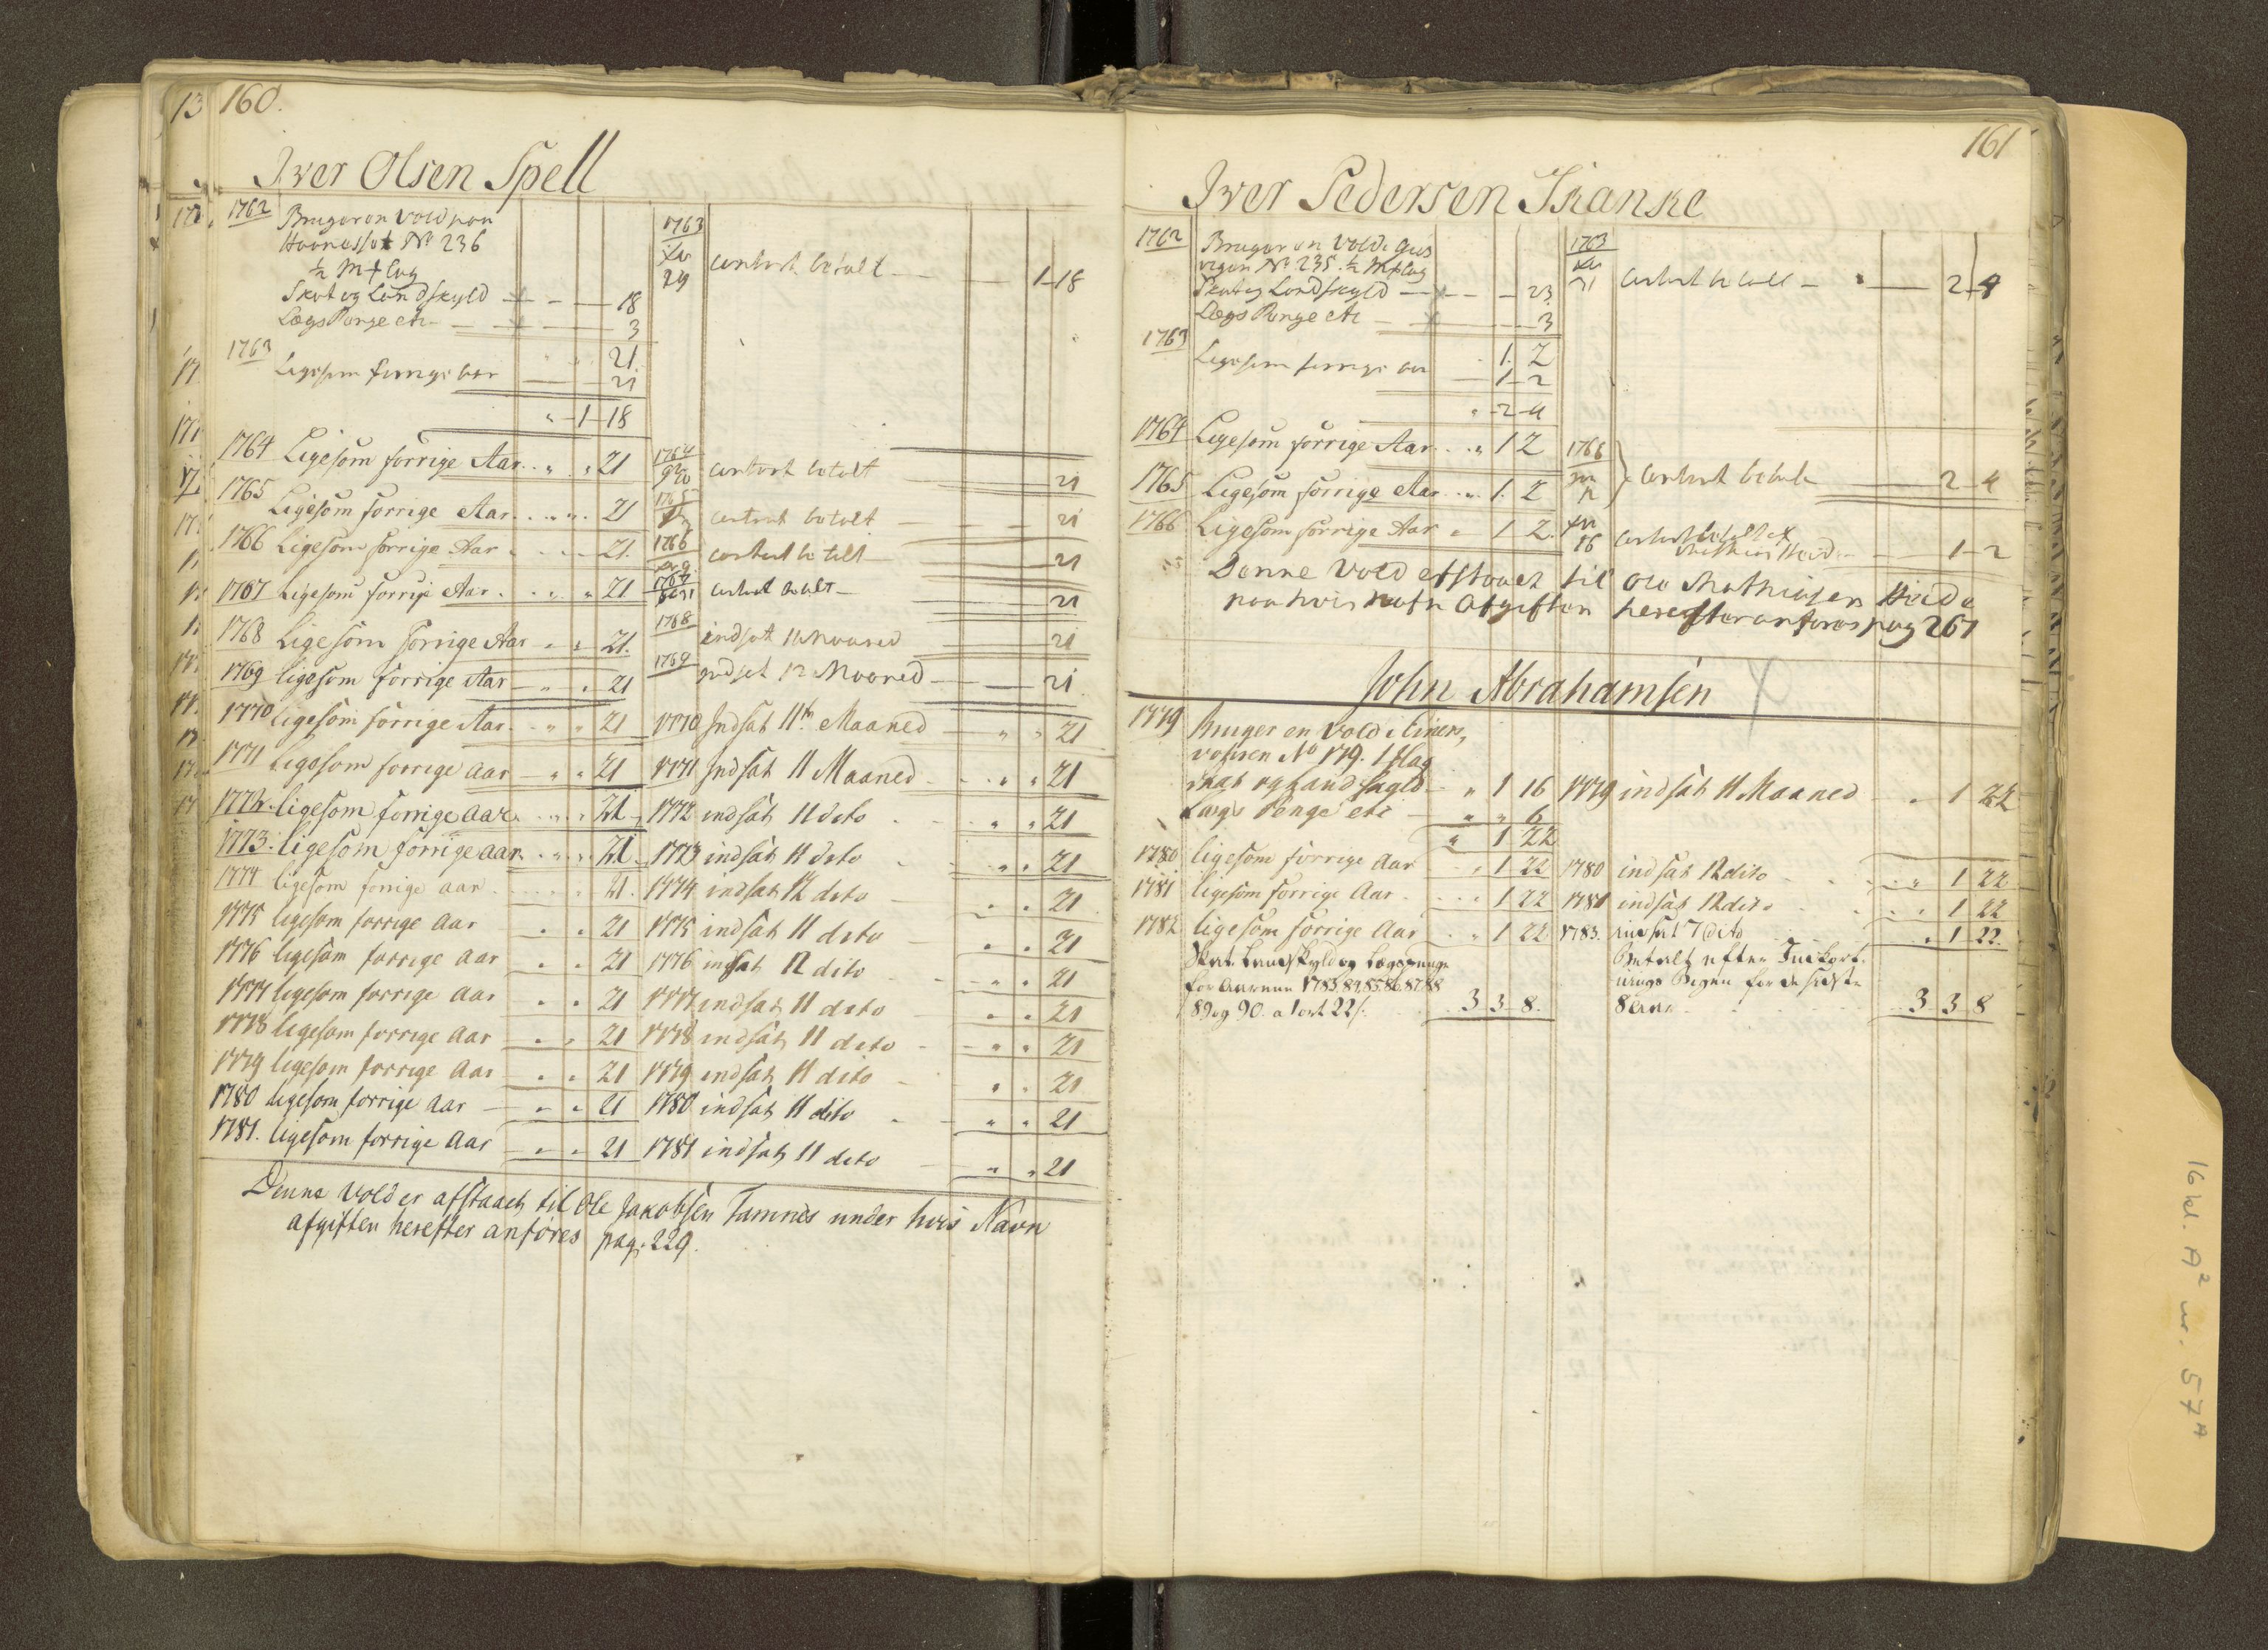 160.
Iver Olsen Spell
1762 Bruger en Vold paa
Haanesset No 236
½ M + lag
Skat og Landskyld — — 18
Lægs Penge etc — — 3
21.
1763 Ligesom forrige Aar — 21
" — 1 — 18
1763
29 contant betalt — — 1 — 18
1764 Ligesom forrige Aar . . " . " 21
1764 contant betalt — — 21
1765 Ligesom forrige Aar . . " . " . 21
1765 contant betalt — — 21
1766 Ligesom forrige Aar . . . 21.
1766 contant betalt — — 21
1767 Ligesom forrige Aar . . " . " 21
1767 contant betalt — — 21
1768 Ligesom forrige Aar . " . " 21.
1768 indsat 11 Maaned — 21
1769 ligesom forrige Aar — " . " 21
1769 indsat 12 Maaned — — 21
1770 ligesom forrige Aar . . " " 21 1770 Indsat 11te Maaned — " " 21
1771 ligesom forrige Aar — " " 21 1771 Indsat 11 Maaned — . " " 21
1772. ligesom forrige Aar . . " . " 21 1772 indsat 11 dito . — " " 21
1773. ligesom forrige Aar . . " . " 21. 1773 indsat 11 dito . — " " 21
1774 ligesom forrige aar . . . . 21. 1774 indsat 12 dito — " " 21
1775 ligesom forrige Aar " " 21 1775 indsat 11 dito — " " 21
1776 ligesom forrige Aar " " 21 1776 indsat 12 dito — " " 21
1777 ligesom forrige Aar " " 21 1777 indsat 11 dito — " " 21
1778 ligesom forrige Aar — " " 21 1778 indsat 11 dito — " " 21
1779 ligesom forrige Aar — " " 21 1779 indsat 11 dito — " " 21
1780 ligesom forrige Aar — " " 21 1780 indsat 11 dito . — " " 21
1781. ligesom forrige Aar — " " 21 1781 indsat 11 dito — " " 21
Denne Vold er afstaaet til Ole Jakobsen Tamnes under hvis Navn
afgiften herefter anføres pag: 229.
161
Iver Pedersen Skanke
1762 Bruger en Vold i
No 235. ½ M + lag
Skat og Landskyld — — 23.
Lægs Penge etc — — 3
" 1. 2
1763 Ligesom forrige Aar — 1 — 2
" — 2 — 4
1763
contant betalt — " — 2 — 4
1764 Ligesom forrige Aar . . " 1 2
1765 Ligesom forrige Aar . . " 1. 2
1766
contant betalt — 2 — 4
1766 Ligesom forrige Aar " 1 2.
16 contant betalt af
Mathias — 1 — 2
Denne Vold afstaaet til Ole Mathiasen
paa hvis Nafn Afgiften herefter anføres pag 261
John Abrahamsen
1779 Bruger en Vold i
No 179. 1 Mag
Skat og Landskyld — " 1 16 1779 indsat 11 Maaned — " 1 22
Lægs Penge etc — " " 6
" 1 22
1780 ligesom forrige Aar — " 1 22 1780 indsat 12 dito . . . " 1 22
1781 ligesom forrige Aar . . . " 1 22 1781 indsat 12 dito . . . " 1 22
1782 ligesom forrige Aar . . " 1 22 1783. indsat 7 dito " 1 22.
Skat Landskyld og Lægspenge
for Aarene 1783, 84, 85, 86, 87, 88
89 og 90. a 1 ort 22/. . . 3 3 8.
Betalt efter Inkort-
nings Bogen for de sidste
8 Aar . . . . . 3 3 8
16 kl. A² nr. 57A